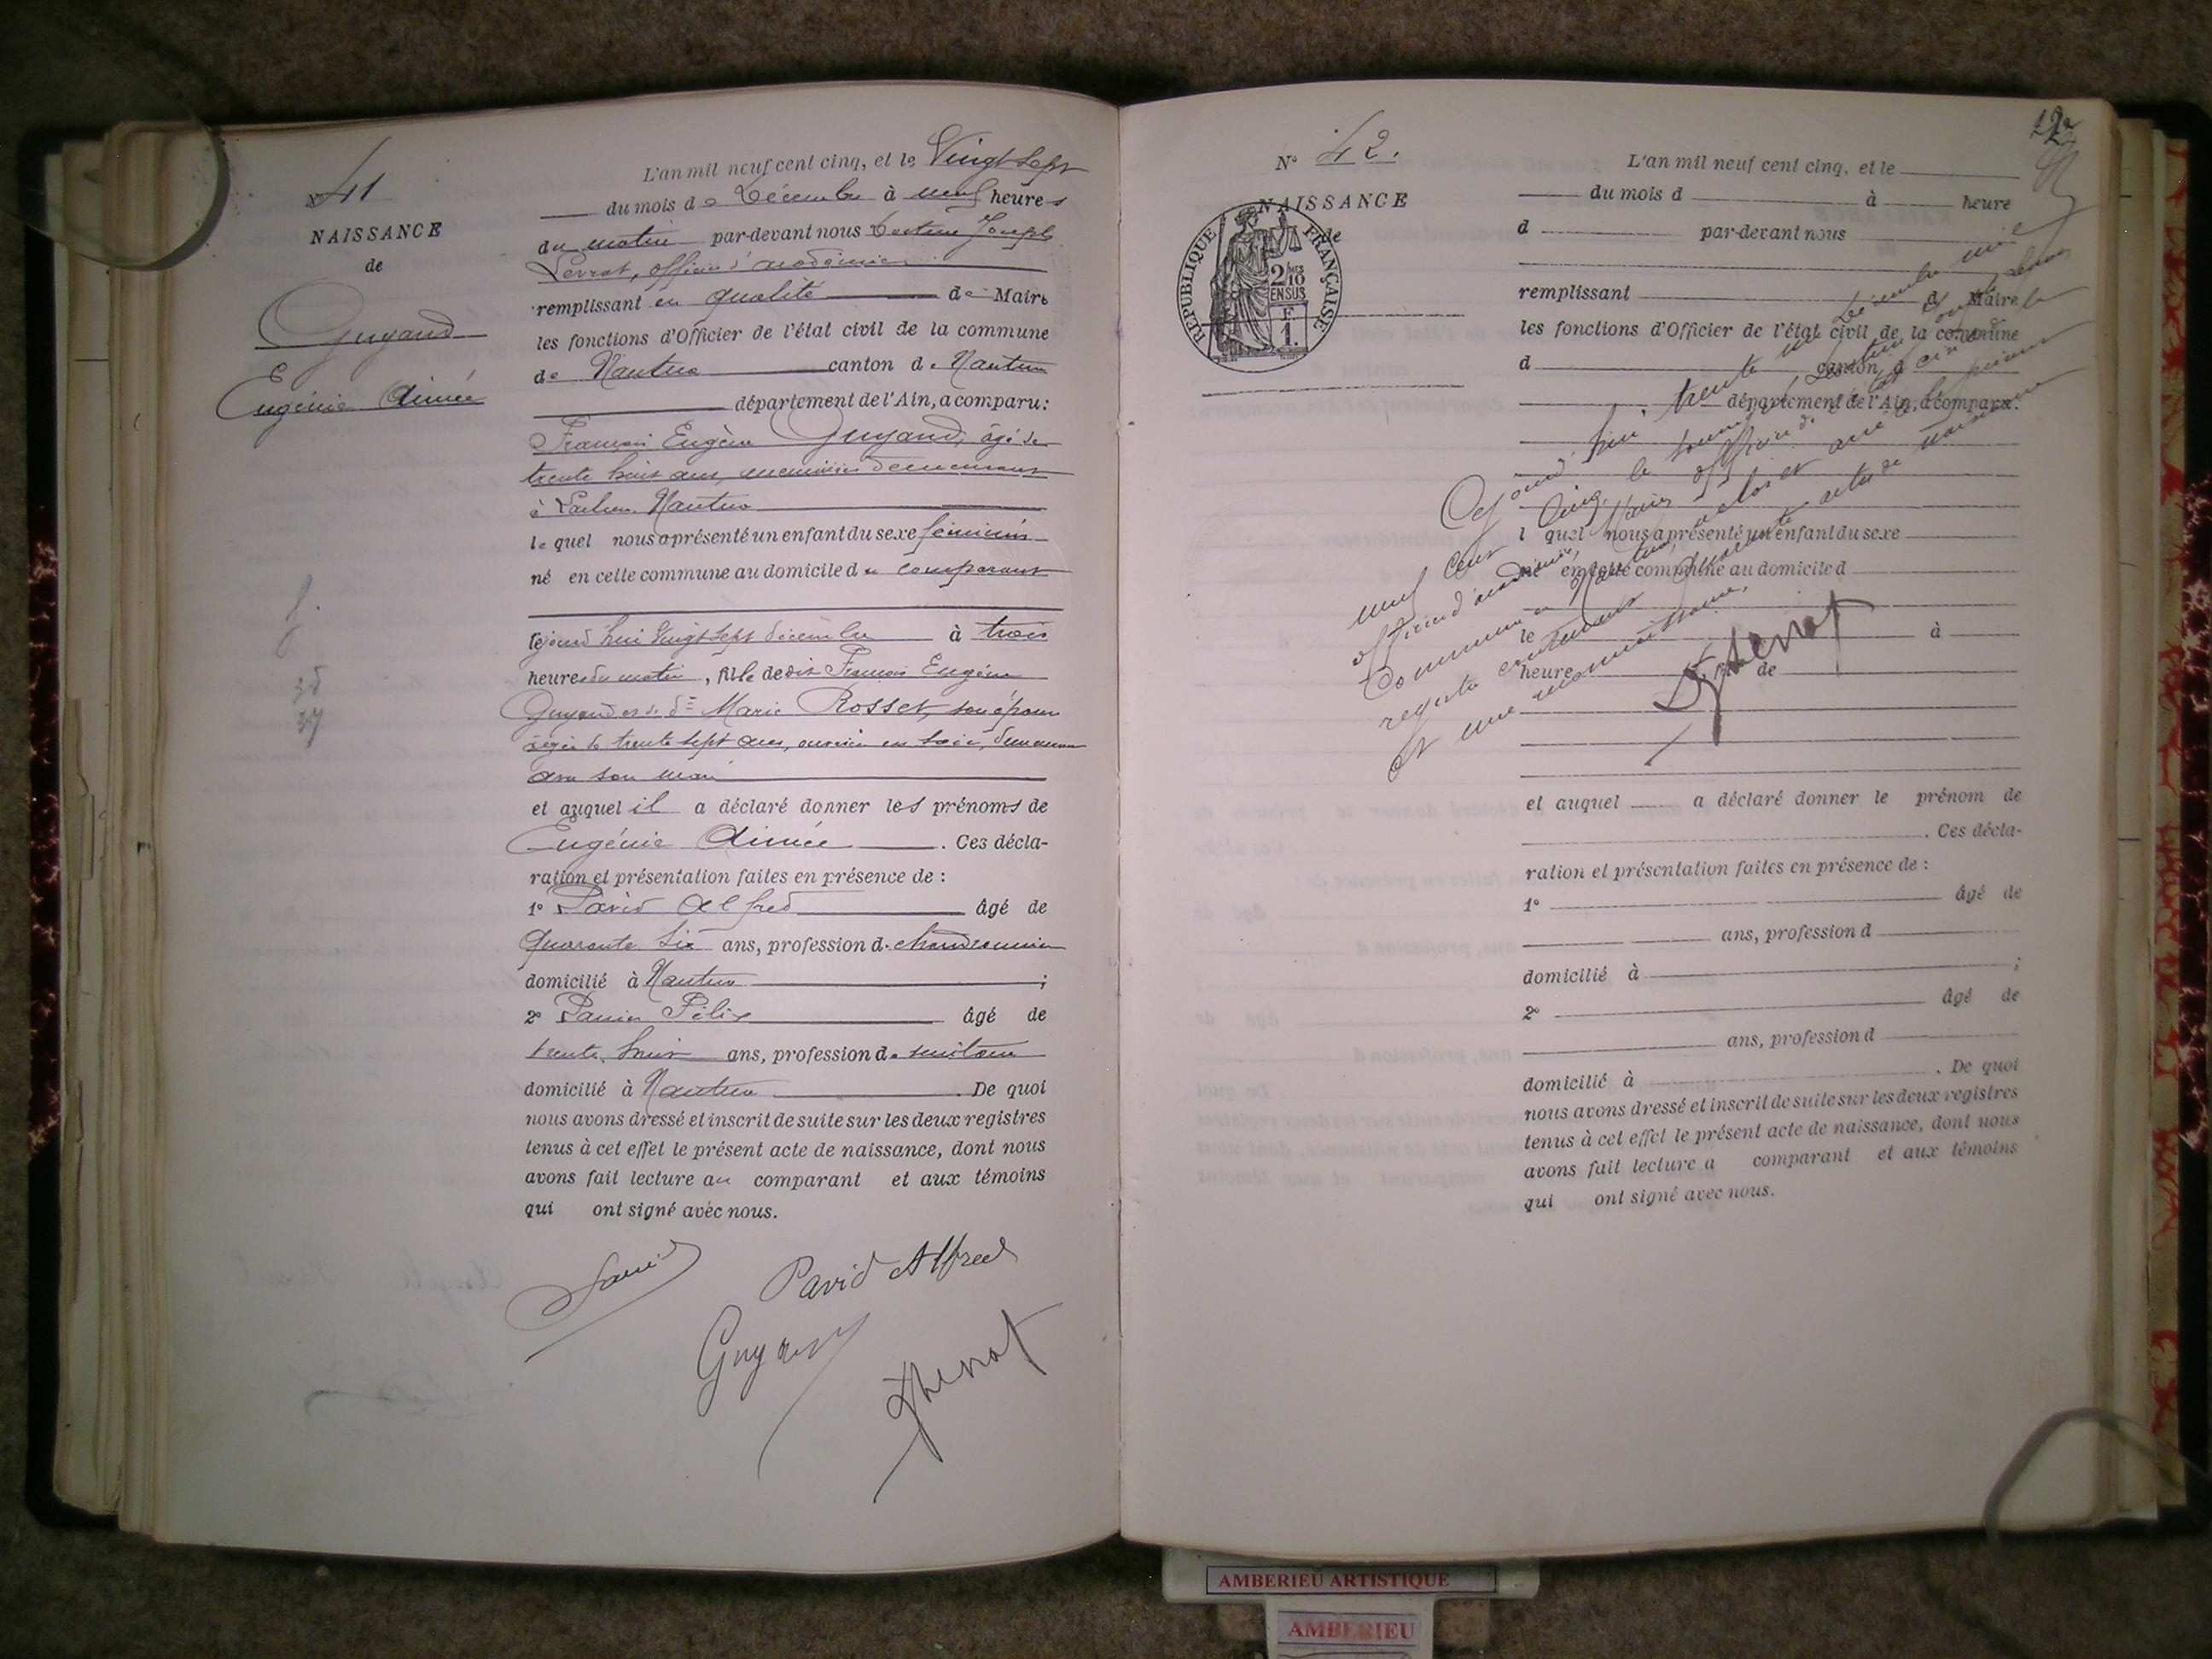 41
NAISSANCE
de
Guyand
Eugénie Aimée
38
37
L'an mil neuf cent cinq, et le Vingt sept
du mois de Décembre à neuf heures
du matin par-devant nous Docteur Joseph
Levrat, officier d'académie
remplissant en qualité de Maire
les fonctions d'Officier de l'état civil de la commune
de Nantua canton de Nantua
département de l'Ain, a comparu :
François Eugène Guyand, âgé de
trente huit ans, menuisier demeurant
à Nantua
lequel nous a présenté un enfant du sexe féminin
né en cette commune au domicile du comparant
cejourd'hui vingt sept décembre à trois
heures du matin, fille de dit François Eugène
Guyand et de de Marie Rosset, son épouse
âgée de trente sept ans, ouvrière en soie, demeurant
avec son mari
et auquel il a déclaré donner les prénoms de
Eugénie Aimée. Ces décla-
ration et présentation faites en présence de :
1° Pavid Alfred âgé de
quarante six ans, profession de
domicilié à Nantua ;
2° Félix âgé de
trente huit ans, profession de
domicilié à Nantua. De quoi
nous avons dressé et inscrit de suite sur les deux registres
tenus à cet effet le présent acte de naissance, dont nous
avons fait lecture au comparant et aux témoins
qui ont signé avec nous.
Pavid Alfred
Guyand
Levrat
12
N° 42.
NAISSANCE
de
RÉPUBLIQUE FRANÇAISE
2/10 EN SUS
F
1.
L'an mil neuf cent cinq, et le
du mois d à heure
d par-devant nous
remplissant d Maire
les fonctions d'Officier de l'état civil de la commune
d canton d
département de l'Ain, a comparu :
l quel nous a présenté un enfant du sexe
né en cette commune au domicile d
le à
heure de
Cejourd'hui, trente un Décembre mil
neuf cent cinq, le Docteur Joseph Levrat
officier d'académie, Maire officier de l'état civil de la
commune de Nantua, a clos et arrêté le présent
registre contenant quarante actes de naissance
et une reconnaissance.
Levrat
et auquel a déclaré donner le prénom de
. Ces décla-
ration et présentation faites en présence de :
1° âgé de
ans, profession d
domicilié à ;
2° âgé de
ans, profession d
domicilié à . De quoi
nous avons dressé et inscrit de suite sur les deux registres
tenus à cet effet le présent acte de naissance, dont nous
avons fait lecture a comparant et aux témoins
qui ont signé avec nous.
AMBERIEU ARTISTIQUE
AMBERIEU